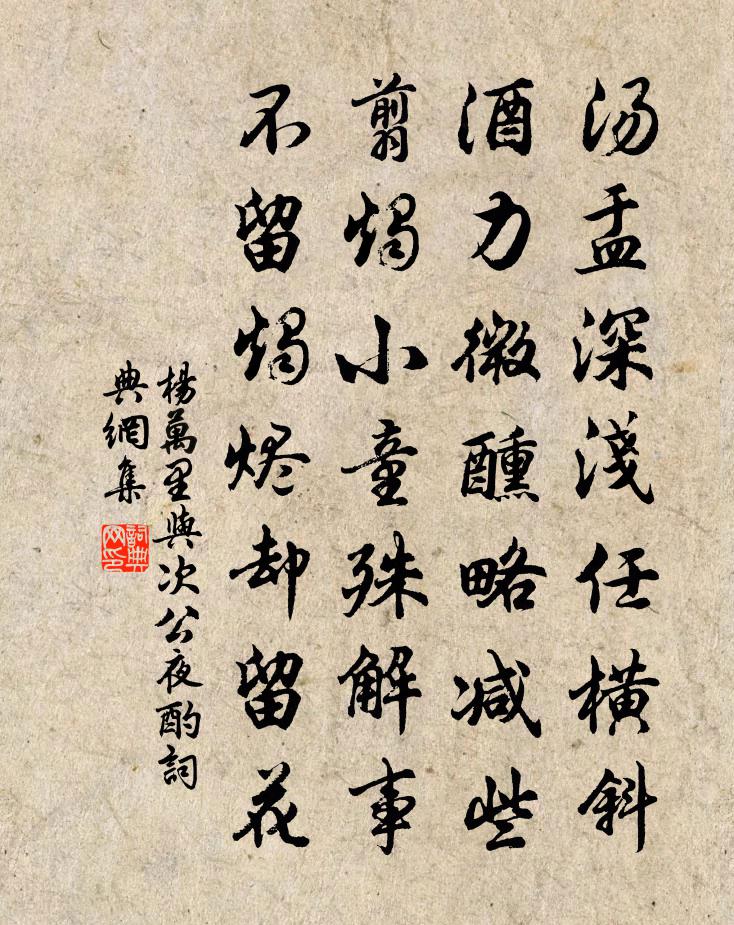 汤盂深淺任橫斜
酒力微醺略减些
翦燭小童殊解事
不留燭烬却留花
楊萬里與次公夜酌詞
典網集
詞典
网印